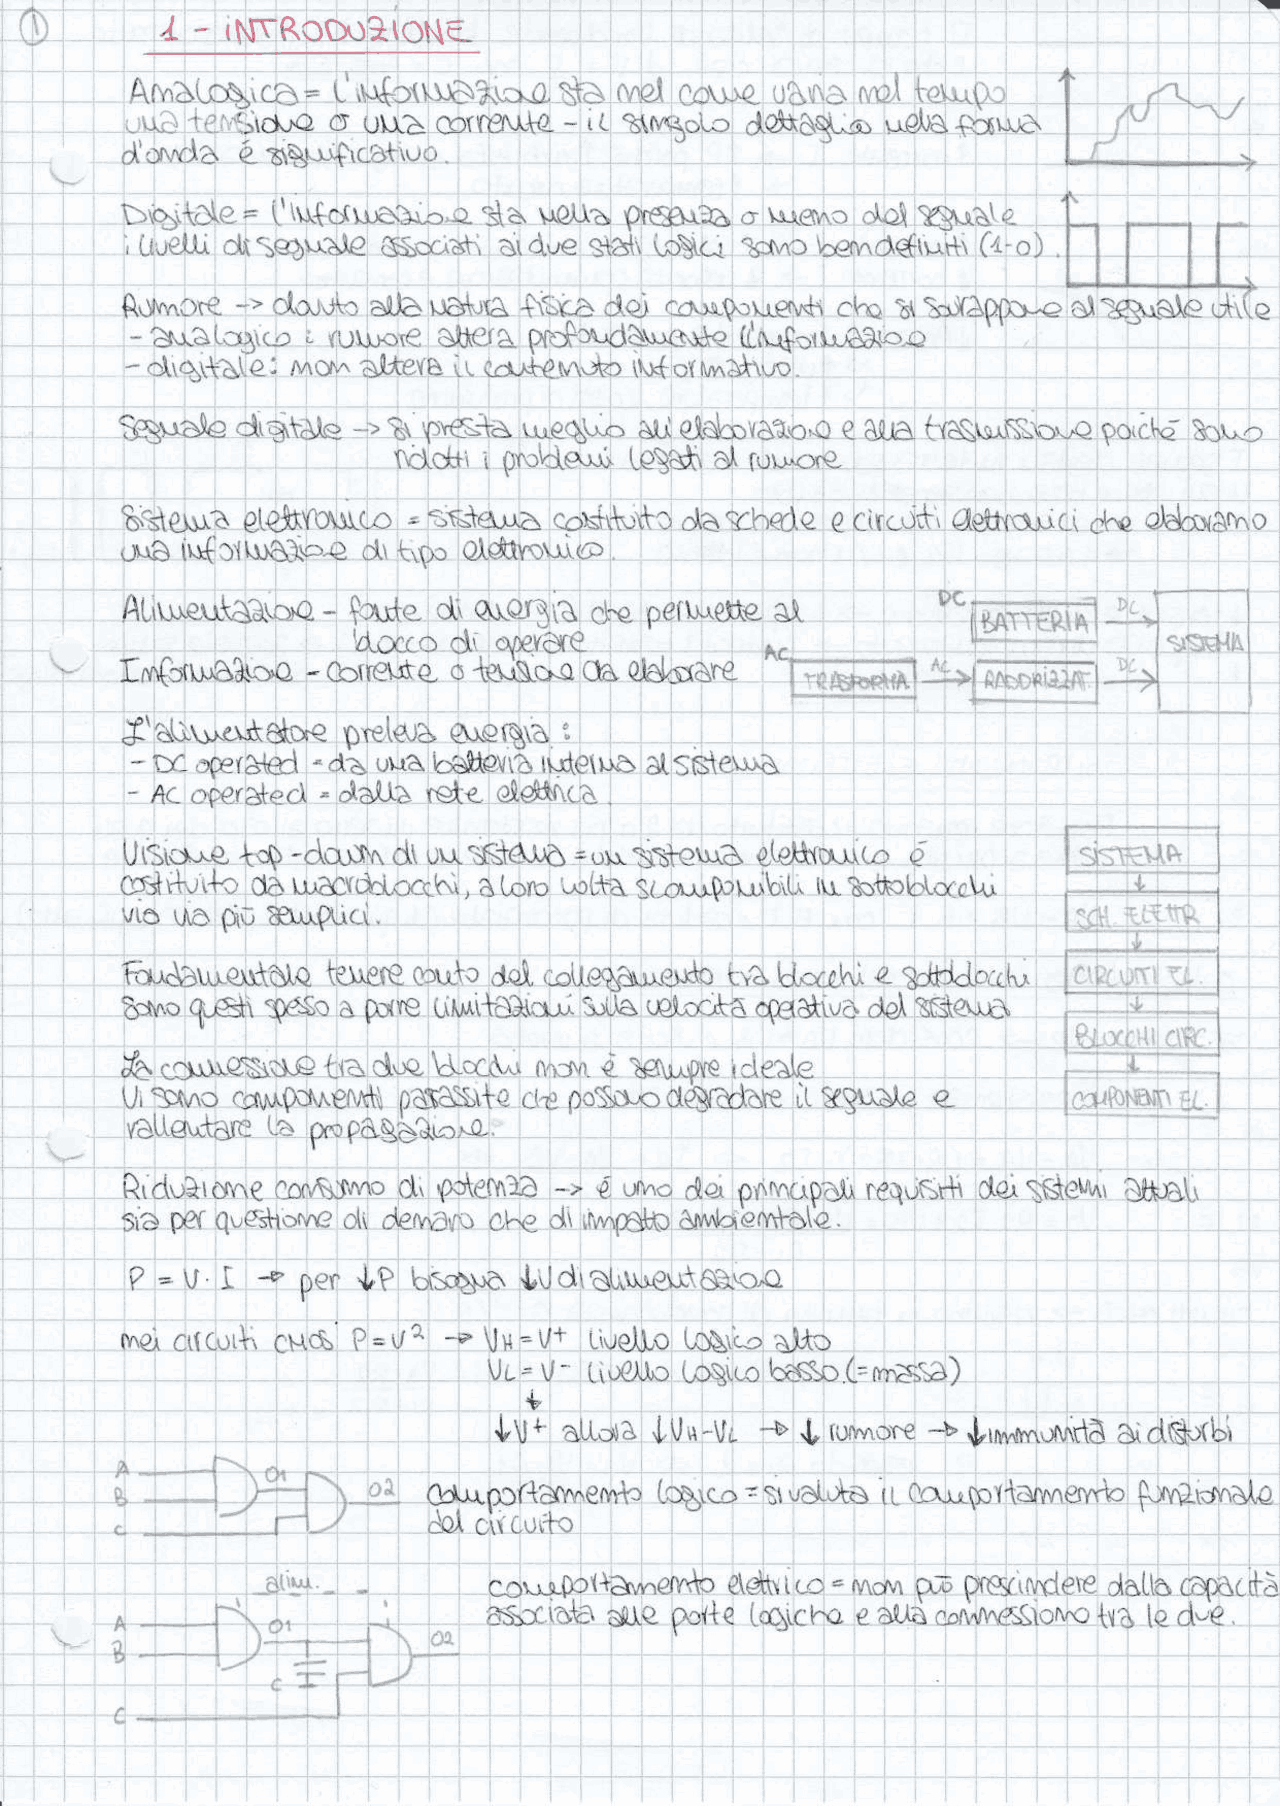 1
1 - INTRODUZIONE
Analogica = l'informazione sta nel come varia nel tempo
una tensione o una corrente - il singolo dettaglio nella forma
d'onda è significativo.
Digitale = l'informazione sta nella presenza o meno del segnale
i livelli di segnale associati ai due stati logici sono ben definiti (1-0).
Rumore -> dovuto alla natura fisica dei componenti che si sovrappone al segnale utile
- analogico : rumore altera profondamente l'informazione
- digitale: non altera il contenuto informativo.
Segnale digitale -> si presta meglio all'elaborazione e alla trasmissione poiché sono
ridotti i problemi legati al rumore
Sistema elettronico = sistema costituito da schede e circuiti elettronici che elaborano
una informazione di tipo elettronico.
Alimentazione - fonte di energia che permette al
blocco di operare
Informazione - corrente o tensione da elaborare
DC BATTERIA DC SISTEMA
AC TRASFORMA AC RADDRIZZAT. DC
L'alimentatore preleva energia :
- DC operated = da una batteria interna al sistema
- AC operated = dalla rete elettrica
Visione top-down di un sistema = un sistema elettronico è
costituito da macroblocchi, a loro volta scomponibili in sottoblocchi
via via più semplici.
SISTEMA
↓
SCH. ELETTR
↓
CIRCUITI EL.
↓
BLOCCHI CIRC.
↓
COMPONENTI EL.
Fondamentale tenere conto del collegamento tra blocchi e sottoblocchi
sono questi spesso a porre limitazioni sulla velocità operativa del sistema
La connessione tra due blocchi non è sempre ideale
Vi sono componenti parassite che possono degradare il segnale e
rallentare la propagazione.
Riduzione consumo di potenza -> è uno dei principali requisiti dei sistemi attuali
sia per questione di denaro che di impatto ambientale.
P = V · I → per ↓P bisogna ↓V di alimentazione
nei circuiti CMOS P=V² → VH = V+ livello logico alto
VL = V- livello logico basso (=massa)
↓
↓V+ allora ↓VH-VL → ↓ rumore → ↓immunità ai disturbi
A
B
C
O1
O2
comportamento logico = si valuta il comportamento funzionale
del circuito
alim.
A
B
C
O1
C
O2
comportamento elettrico = non può prescindere dalla capacità
associata alle porte logiche e alla connessione tra le due.